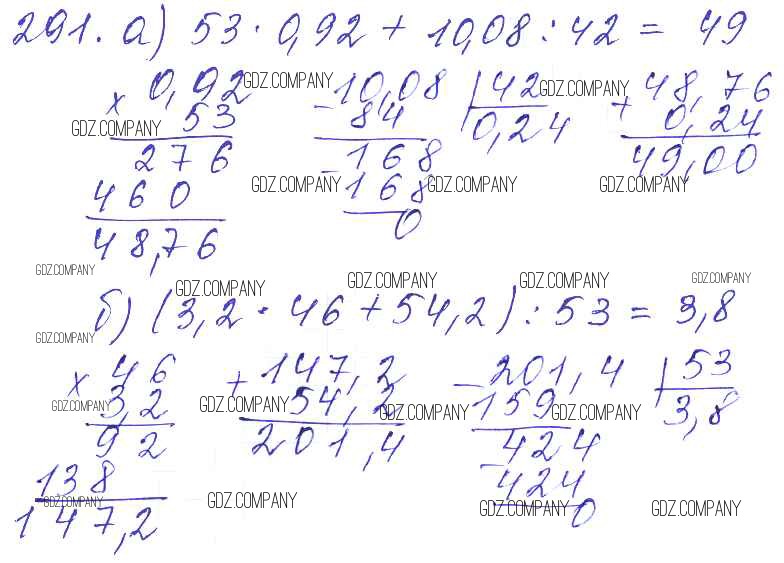 291. а) 53 · 0,92 + 10,08 : 42 = 49
× 0,92 GDZ.COMPANY - 10,08 | 42 GDZ.COMPANY + 48,76
53 84 0,24 0,24
GDZ.COMPANY
276 - 168 49,00
460 GDZ.COMPANY 168 GDZ.COMPANY GDZ.COMPANY
48,76 0
GDZ.COMPANY
GDZ.COMPANY GDZ.COMPANY GDZ.COMPANY GDZ.COMPANY
б) (3,2 · 46 + 54,2) : 53 = 3,8
GDZ.COMPANY
× 46 + 147,2 - 201,4 | 53
3,2 54,2 159 3,8
GDZ.COMPANY GDZ.COMPANY GDZ.COMPANY GDZ.COMPANY
92 201,4 - 424
138 424
GDZ.COMPANY GDZ.COMPANY
147,2 0
GDZ.COMPANY GDZ.COMPANY